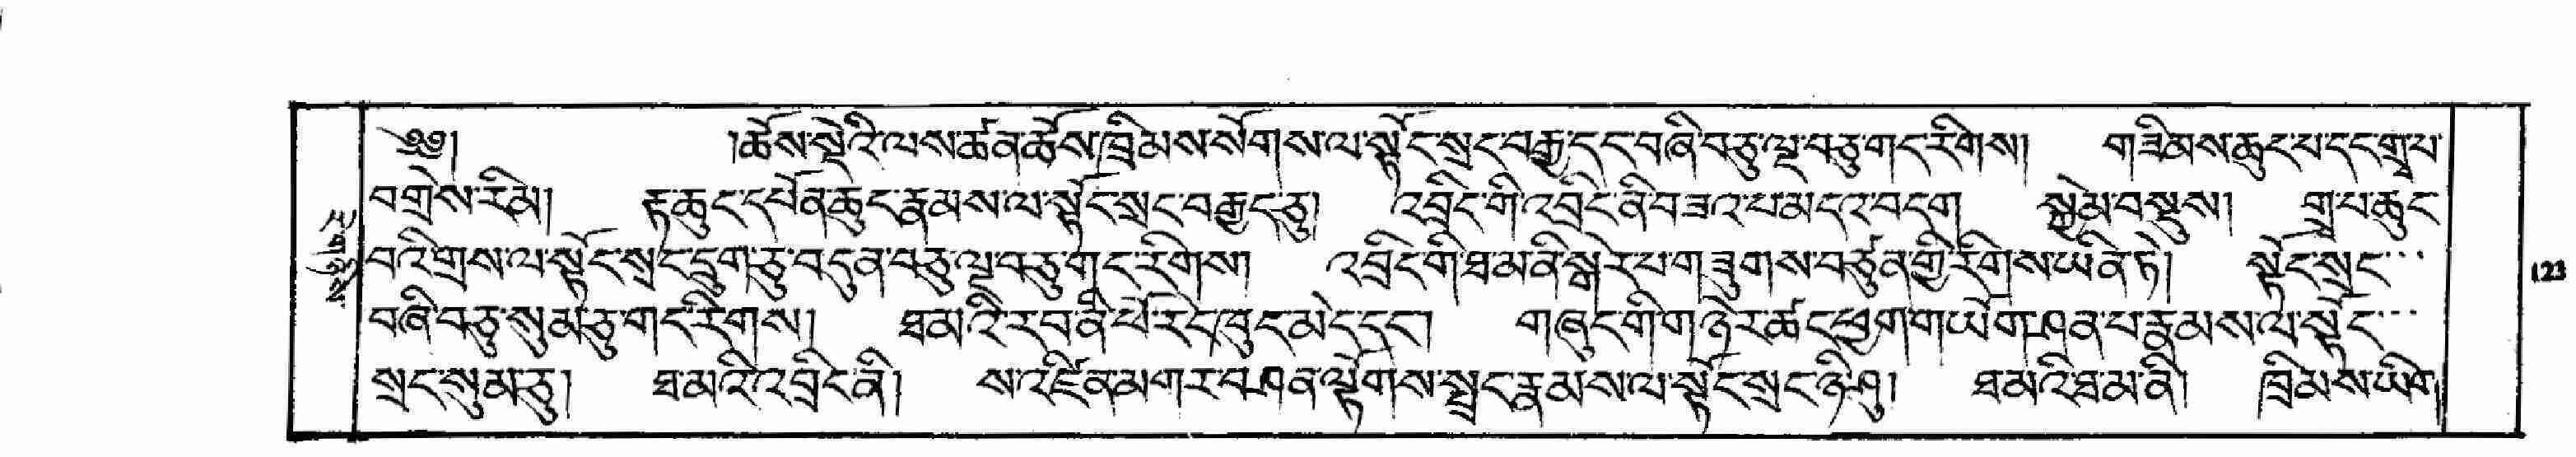 ༄༅། །ཆོས་སྡེའི་ལས་ཚན་ཆོས་ཁྲིམས་སོགས་ལ་སྟོང་སྲང་བརྒྱ་དང་བཞི་བཅུ་ལྔ་བཅུ་གང་རིགས། གཟིམས་ཆུང་པ་དང་གྲྭ་པ་
བགྲེས་རིམ། རྟ་ཆུང་དཔོན་ཆུང་རྣམས་ལ་སྟོང་སྲང་བརྒྱད་ཅུ། འབྲིང་གི་འབྲིང་ནི་བཟའ་པ་མདའ་བདག སྐྱེམ་བསྡུས། གྲྭ་པ་ཆུང་
བའི་གྲས་ལ་སྟོང་སྲང་དྲུག་ཅུ་བདུན་བཅུ་ལྔ་བཅུ་གང་རིགས། འབྲིང་གི་ཐ་མ་ནི་སྒེར་པ་གཟུགས་བཙུན་གྱི་རིགས་ཡིན་ཏེ། སྟོང་སྲང་...
བཞི་བཅུ་སུམ་ཅུ་གང་རིགས། ཐ་མའི་རབ་ནི་ཕོ་རང་ཁུང་མེད་དང་། གཞུང་གི་གཉེར་ཚང་ཕྱག་གཡོག་ཤན་པ་རྣམས་ལ་སྟོང་...
སྲང་སུམ་ཅུ། ཐ་མའི་འབྲིང་ནི། ས་འཛིན་མགར་བ་ཤན་ལྟོགས་སྤྲང་རྣམས་ལ་སྟོང་སྲང་ཉི་ཤུ། ཐ་མའི་ཐ་མ་ནི། ཁྲིམས་ཡིག
123